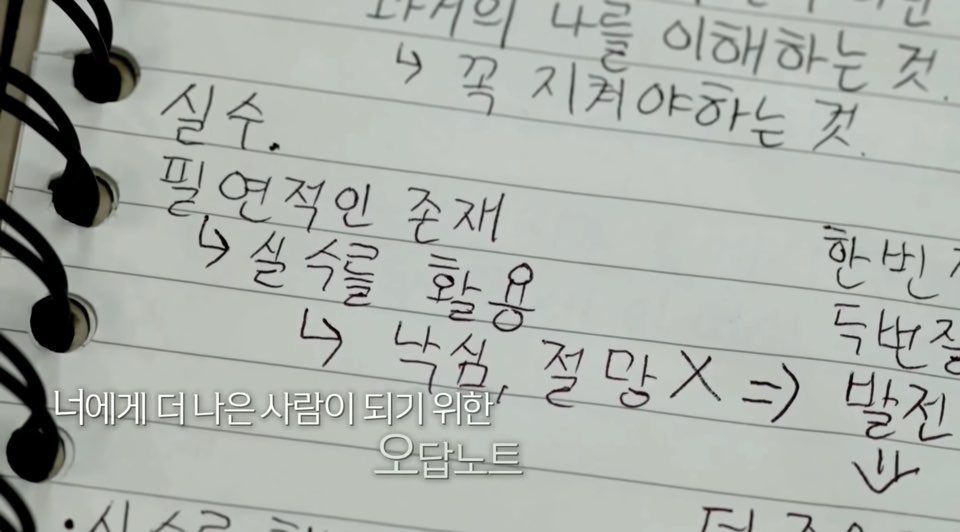 나를 이해하는 것.
↳ 꼭 지켜야하는 것.
실수.
필연적인 존재
↳ 실수를 활용
↳ 낙심, 절망 X ⇒ 발전
한번
두번
너에게 더 나은 사람이 되기 위한
오답노트